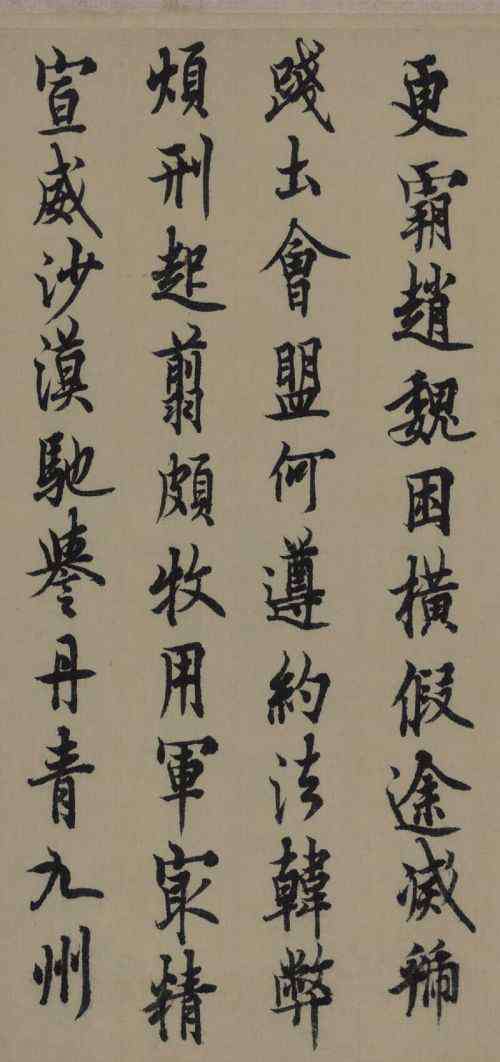 更霸趙魏困橫假途滅虢
踐土會盟何遵約法韓弊
煩刑起翦頗牧用軍㝡精
宣威沙漠馳譽丹青九州